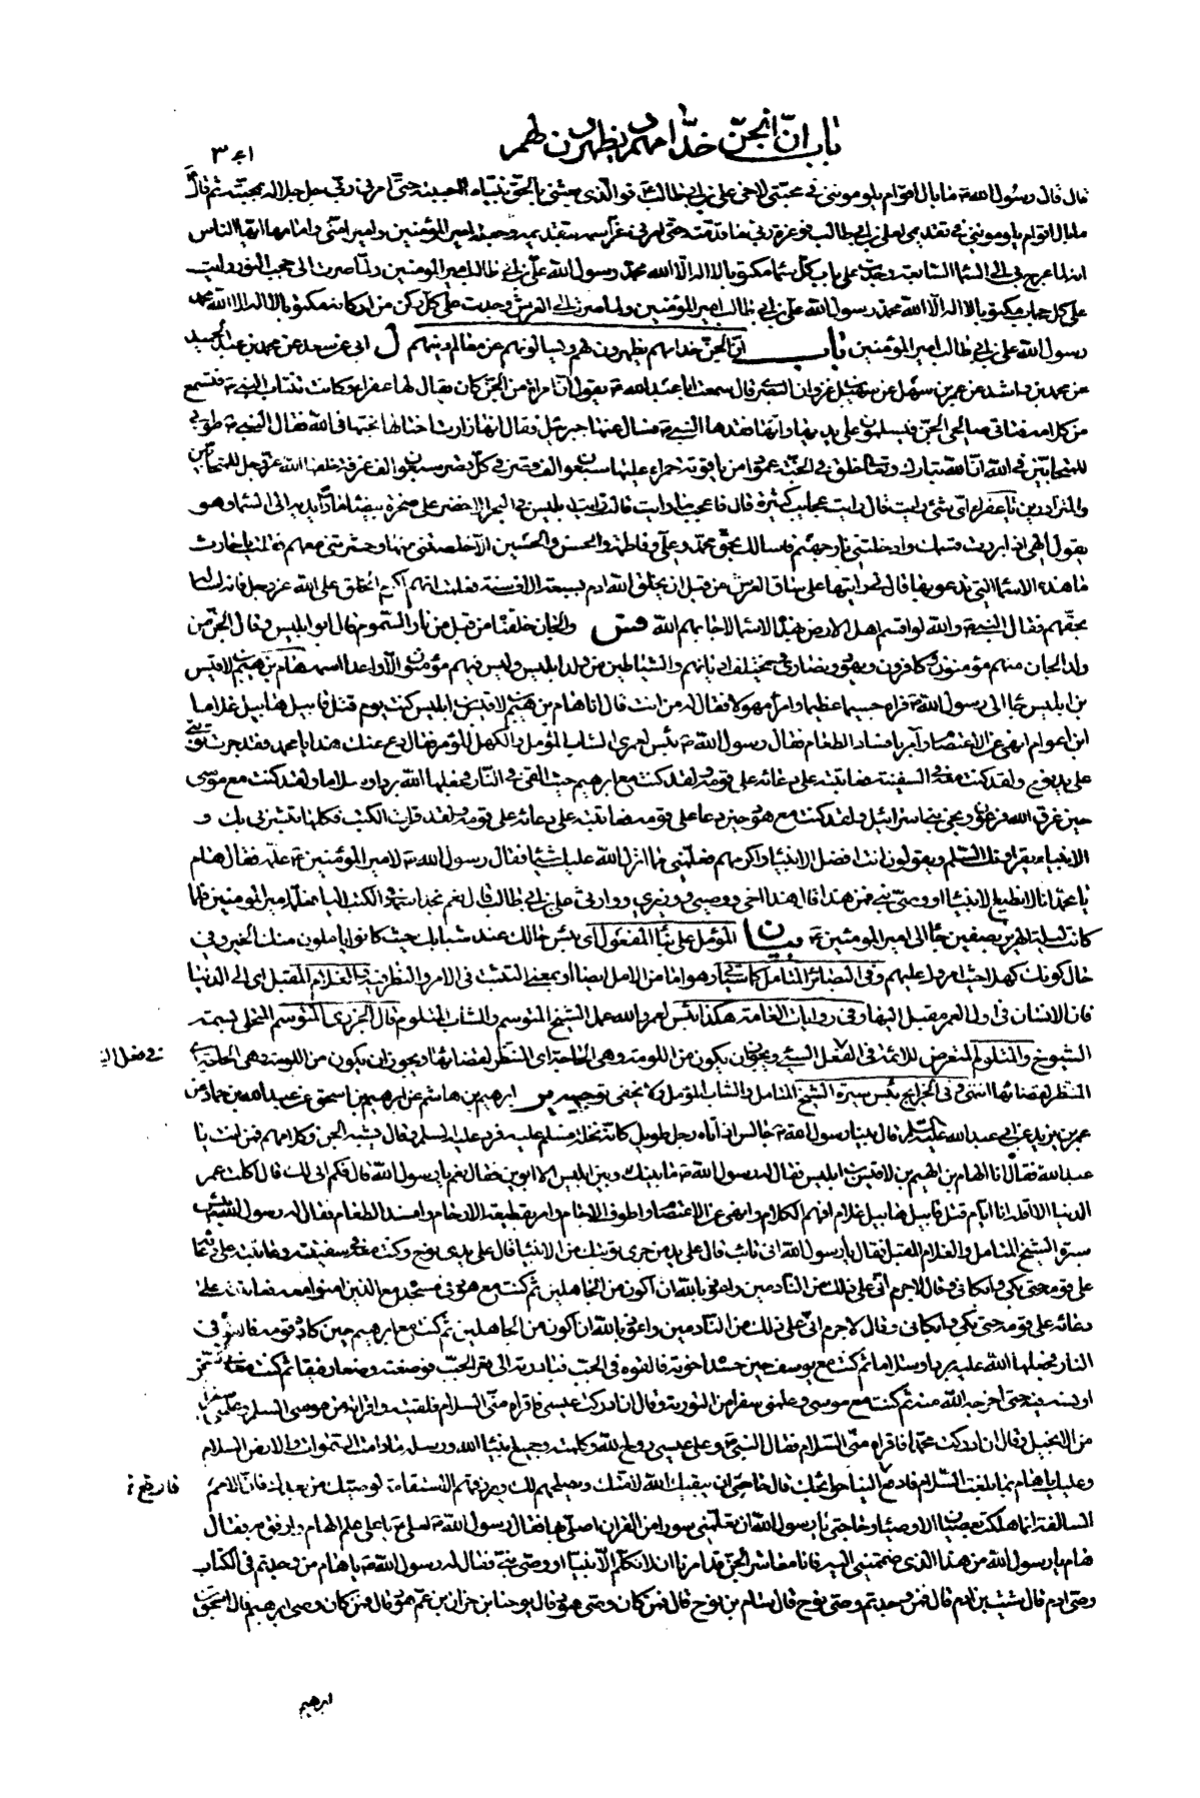 باب انّ الجنّ خدّامهم يظهرون لهم
قال قال رسول الله ص ما بال اقوام يلومونني في محبتي لاخي علي بن ابي طالب ع فوالذي بعثني بالحق نبيا ما احببته حتى امرني ربي جل جلاله بمحبته ثم قال
ما بال اقوام يلومونني في تقديمي لعلي بن ابي طالب فوعزة ربي ما قدمته حتى امرني عز اسمه بتقديمه وجعله امير المؤمنين وامير امتي وامامها ايها الناس
انه لما عرج بي الى السماء السابعة وجدت على باب كل سماء مكتوبا لا اله الا الله محمد رسول الله علي بن ابي طالب امير المؤمنين ولما صرت الى حجب النور رايت
على كل حجاب مكتوبا لا اله الا الله محمد رسول الله علي بن ابي طالب امير المؤمنين ولما صرت الى العرش وجدت على كل ركن من اركانه مكتوبا لا اله الا الله محمد
رسول الله علي بن ابي طالب امير المؤمنين باب ان الجن خدامهم يظهرون لهم ويسالونهم عن معالم دينهم ل ابي عن سعد عن محمد بن عبد الحميد
عن محمد بن راشد عن عمر بن سهل عن سهيل بن غزوان البصري قال سمعت ابا عبد الله ع يقول ان امراة من الجن كان يقال لها عفراء وكانت تنتاب النبي ص فتسمع
من كلامه فتاتي صالحي الجن فيسلمون على يديها وانها فقدها النبي ص فسال عنها جبرئيل فقال انها زارت اختا لها تحبها في الله فقال النبي ص طوبى
للمتحابين في الله ان الله تبارك وتعالى خلق في الجنة عمودا من ياقوتة حمراء عليها سبعون الف قصر في كل قصر سبعون الف غرفة خلقها الله عز وجل للمتحابين
والمتزاورين يا عفراء اي شئ رايت قال رايت عجايب كثيرة قال فاعجب ما رايت قالت رايت ابليس في البحر الاخضر على صخرة بيضاء مادّا يديه الى السماء وهو
يقول الهي اذا بررت قسمك وادخلتني نار جهنم فاسالك بحق محمد وعلي وفاطمة والحسن والحسين الا خلصتني منها وحشرتني معهم فقلت يا حارث
ما هذه الاسماء التي تدعو بها قال لي رايتها على ساق العرش من قبل ان يخلق الله ادم بسبعة الاف سنة فعلمت انهم اكرم الخلق على الله عز وجل فانا اساله
بحقهم فقال النبي ص والله لو اقسم اهل الارض بهذه الاسماء لاجابهم الله فس والجان خلقناه من قبل من نار السموم قال ابو ابليس وقال الجن من
ولد الجان منهم مؤمنون وكافرون ويهود ونصارى ويختلف اديانهم والشياطين من ولد ابليس وليس فيهم مؤمنون الا واحد اسمه هام بن هيم بن لاقيس
بن ابليس جاء الى رسول الله ص فراه جسيما عظيما وامرا مهولا فقال له من انت قال انا هام بن هيم بن لاقيس بن ابليس كنت يوم قتل قابيل هابيل غلاما
ابن اعوام انهى عن الاعتصام وآمر بافساد الطعام فقال رسول الله ص بئس لعمري الشاب المؤمل والكهل المؤمر فقال دع عنك هذا يا محمد فقد جرت توبتي
على يد نوح ولقد كنت معه في السفينة فعاتبته على دعائه على قومه ولقد كنت مع ابرهيم حيث القي في النار فجعلها الله بردا وسلاما ولقد كنت مع موسى
حين غرق الله فرعون ونجى بني اسرائيل ولقد كنت مع هود حين دعا على قومه فعاتبته على دعائه على قومه ولقد قرات الكتب فكلها تبشرني بك و
الانبياء يقرؤنك السلم ويقولون انت افضل الانبياء واكرمهم فعلمني مما انزل الله عليك شيئا فقال رسول الله ص لامير المؤمنين ع علمه فقال هام
يا محمد انا لا نطيع الا نبيا او وصي نبي فمن هذا قال هذا اخي ووصيي ووزيري ووارثي علي بن ابي طالب قال نعم نجد اسمه في الكتب اليا فعلمه امير المؤمنين فلما
كانت ليلة الهرير بصفين جاء الى امير المؤمنين ع بيان المؤمل على بناء المفعول اي بئس حالك عند شبابك حيث كانوا ياملون منك الخير وفي
حال كونك كهلا حيث امروك عليهم وفي البصائر المتامل كما سياتي وهو اما من الامل ايضا او بمعنى التثبت في الامر والنظر فيه والغلام المقبل اي الى الدنيا
فان الانسان في اول العمر مقبل اليها وفي روايات العامة هكذا بئس لعمر والله عمل الشيخ المتوسم والشاب المتلوم قال الجزري المتوسم المتحلي بسمة
الشيوخ والمتلوم المتعرض للائمة في الفعل السيئ ويجوز ان يكون من اللومة وهي الحاجة اي المنتظر لقضائها ويجوز ان يكون من اللومة وهي الحاجة اي
المنتظر لقضائها انتهى وفي الخرايج بئس سيرة الشيخ المتامل والشاب المؤمل ولا يخفى توجيهه ير ابرهيم بن هاشم عن ابرهيم بن اسحق عن عبد الله بن حماد عن
عمر بن يزيد عن ابي عبد الله عليه السلم قال بينا رسول الله ص جالس اذ اتاه رجل طويل كانه نخلة فسلم عليه فرد عليه السلم وقال يشبه الجن وكلامهم فمن انت يا
عبد الله فقال انا الهام بن الهيم بن لاقيس بن ابليس فقال له رسول الله ص ما بينك وبين ابليس الا ابوين فقال نعم يا رسول الله قال فكم اتى لك قال اكلت عمر
الدنيا الا اقله انا ايام قتل قابيل هابيل غلام افهم الكلام وانهى عن الاعتصام واطوف الاجام وآمر بقطيعة الارحام وافسد الطعام فقال له رسول الله ص بئس
سيرة الشيخ المتامل والغلام المقبل فقال يا رسول الله اني تائب قال على يد من جرى توبتك من الانبياء قال على يدي نوح وكنت معه في سفينته وعاتبته على دعائه
على قومه حتى بكى وابكاني وقال لا جرم اني على ذلك من النادمين واعوذ بالله ان اكون من الجاهلين ثم كنت مع هود في مسجده مع الذين امنوا معه فعاتبته على
دعائه على قومه حتى بكى وابكاني وقال لا جرم اني على ذلك من النادمين واعوذ بالله ان اكون من الجاهلين ثم كنت مع ابرهيم حين كاده قومه فالقوه في
النار فجعلها الله عليه بردا وسلاما ثم كنت مع يوسف حين حسده اخوته فالقوه في الجب فبادرته الى قعر الجب فوضعته وضعا رفيقا ثم كنت معه في السجن
اونسه فيه حتى اخرجه الله منه ثم كنت مع موسى وعلمني سفرا من التورية وقال ان ادركت عيسى فاقراه مني السلام فلقيته واقراته من موسى السلم وعلمني سفرا
من الانجيل وقال ان ادركت محمدا فاقراه مني السلام فقال النبي ص وعلى عيسى روح الله وكلمته وجميع انبياء الله ورسله ما دامت السموات والارض السلام
وعليك يا هام بما بلغت السلام فارفع الينا حوائجك قال حاجتي ان يبقيك الله لامتك ويصلحهم لك ويرزقهم الاستقامة لوصيك من بعدك فان الامم
السالفة انما هلكت بعصيان الاوصياء وحاجتي يا رسول الله ان تعلمني سورا من القران اصلي بها فقال رسول الله ص لعلي ع يا علي علم الهام وارفق به فقال
هام يا رسول الله من هذا الذي ضممتني اليه فانا معاشر الجن قد امرنا ان لا نكلم الا نبيا او وصي نبي فقال له رسول الله ص يا هام من وجدتم في الكتاب
وصي ادم قال شيث بن ادم قال فمن وجدتم وصي نوح قال سام بن نوح قال فمن كان وصي هود قال يوحنا بن حزان بن عم هود قال فمن كان وصي ابرهيم قال اسحق بن
ابرهيم